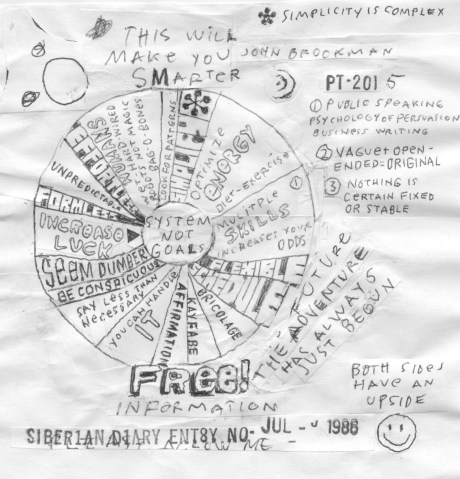 ✻ SIMPLICITY IS COMPLEX
THIS WILL
MAKE YOU
SMARTER
JOHN BROCKMAN
PT-2015
① PUBLIC SPEAKING
PSYCHOLOGY OF PERSUATION
BUSINESS WRITING
② VAGUE + OPEN-
ENDED = ORIGINAL
③ NOTHING IS
CERTAIN FIXED
OR STABLE
LOOK FOR PATTERNS
OPTIMIZE
ENERGY
DIET-EXERCISE
MULITPLE
SKILLS
INCREASES YOUR
ODDS
FLEXIBLE
SCHEDULE
BRICOLAGE
KAYFABE
AFFIRMATION
YOU CAN HANDLE
IT
SAY LESS THAN
NECESSARY
SEEM DUMBER
BE CONSPICUOUS
INCREASE
LUCK
FORMLESS
UNPREDICTABLE
HUMANS
SYSTEM
NOT
GOALS
THE FUTURE
THE ADVENTURE
HAS ALWAYS
JUST BEGUN
FREE!
INFORMATION
BOTH SIDES
HAVE AN
UPSIDE
SIBERIAN DIARY ENT8Y NO- JUL - 1986